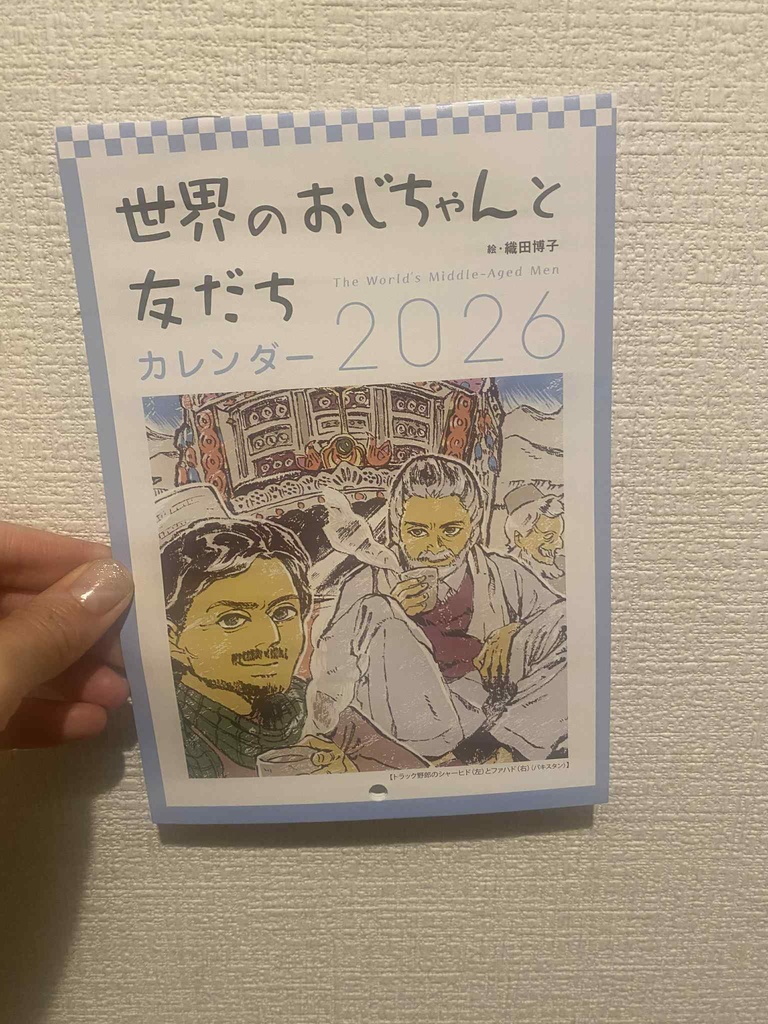 世界のおじちゃんと
絵・織田博子
友だち
The World's Middle-Aged Men
カレンダー 2026
【トラック野郎のシャーヒド(左)とファハド(右)(パキスタン)】